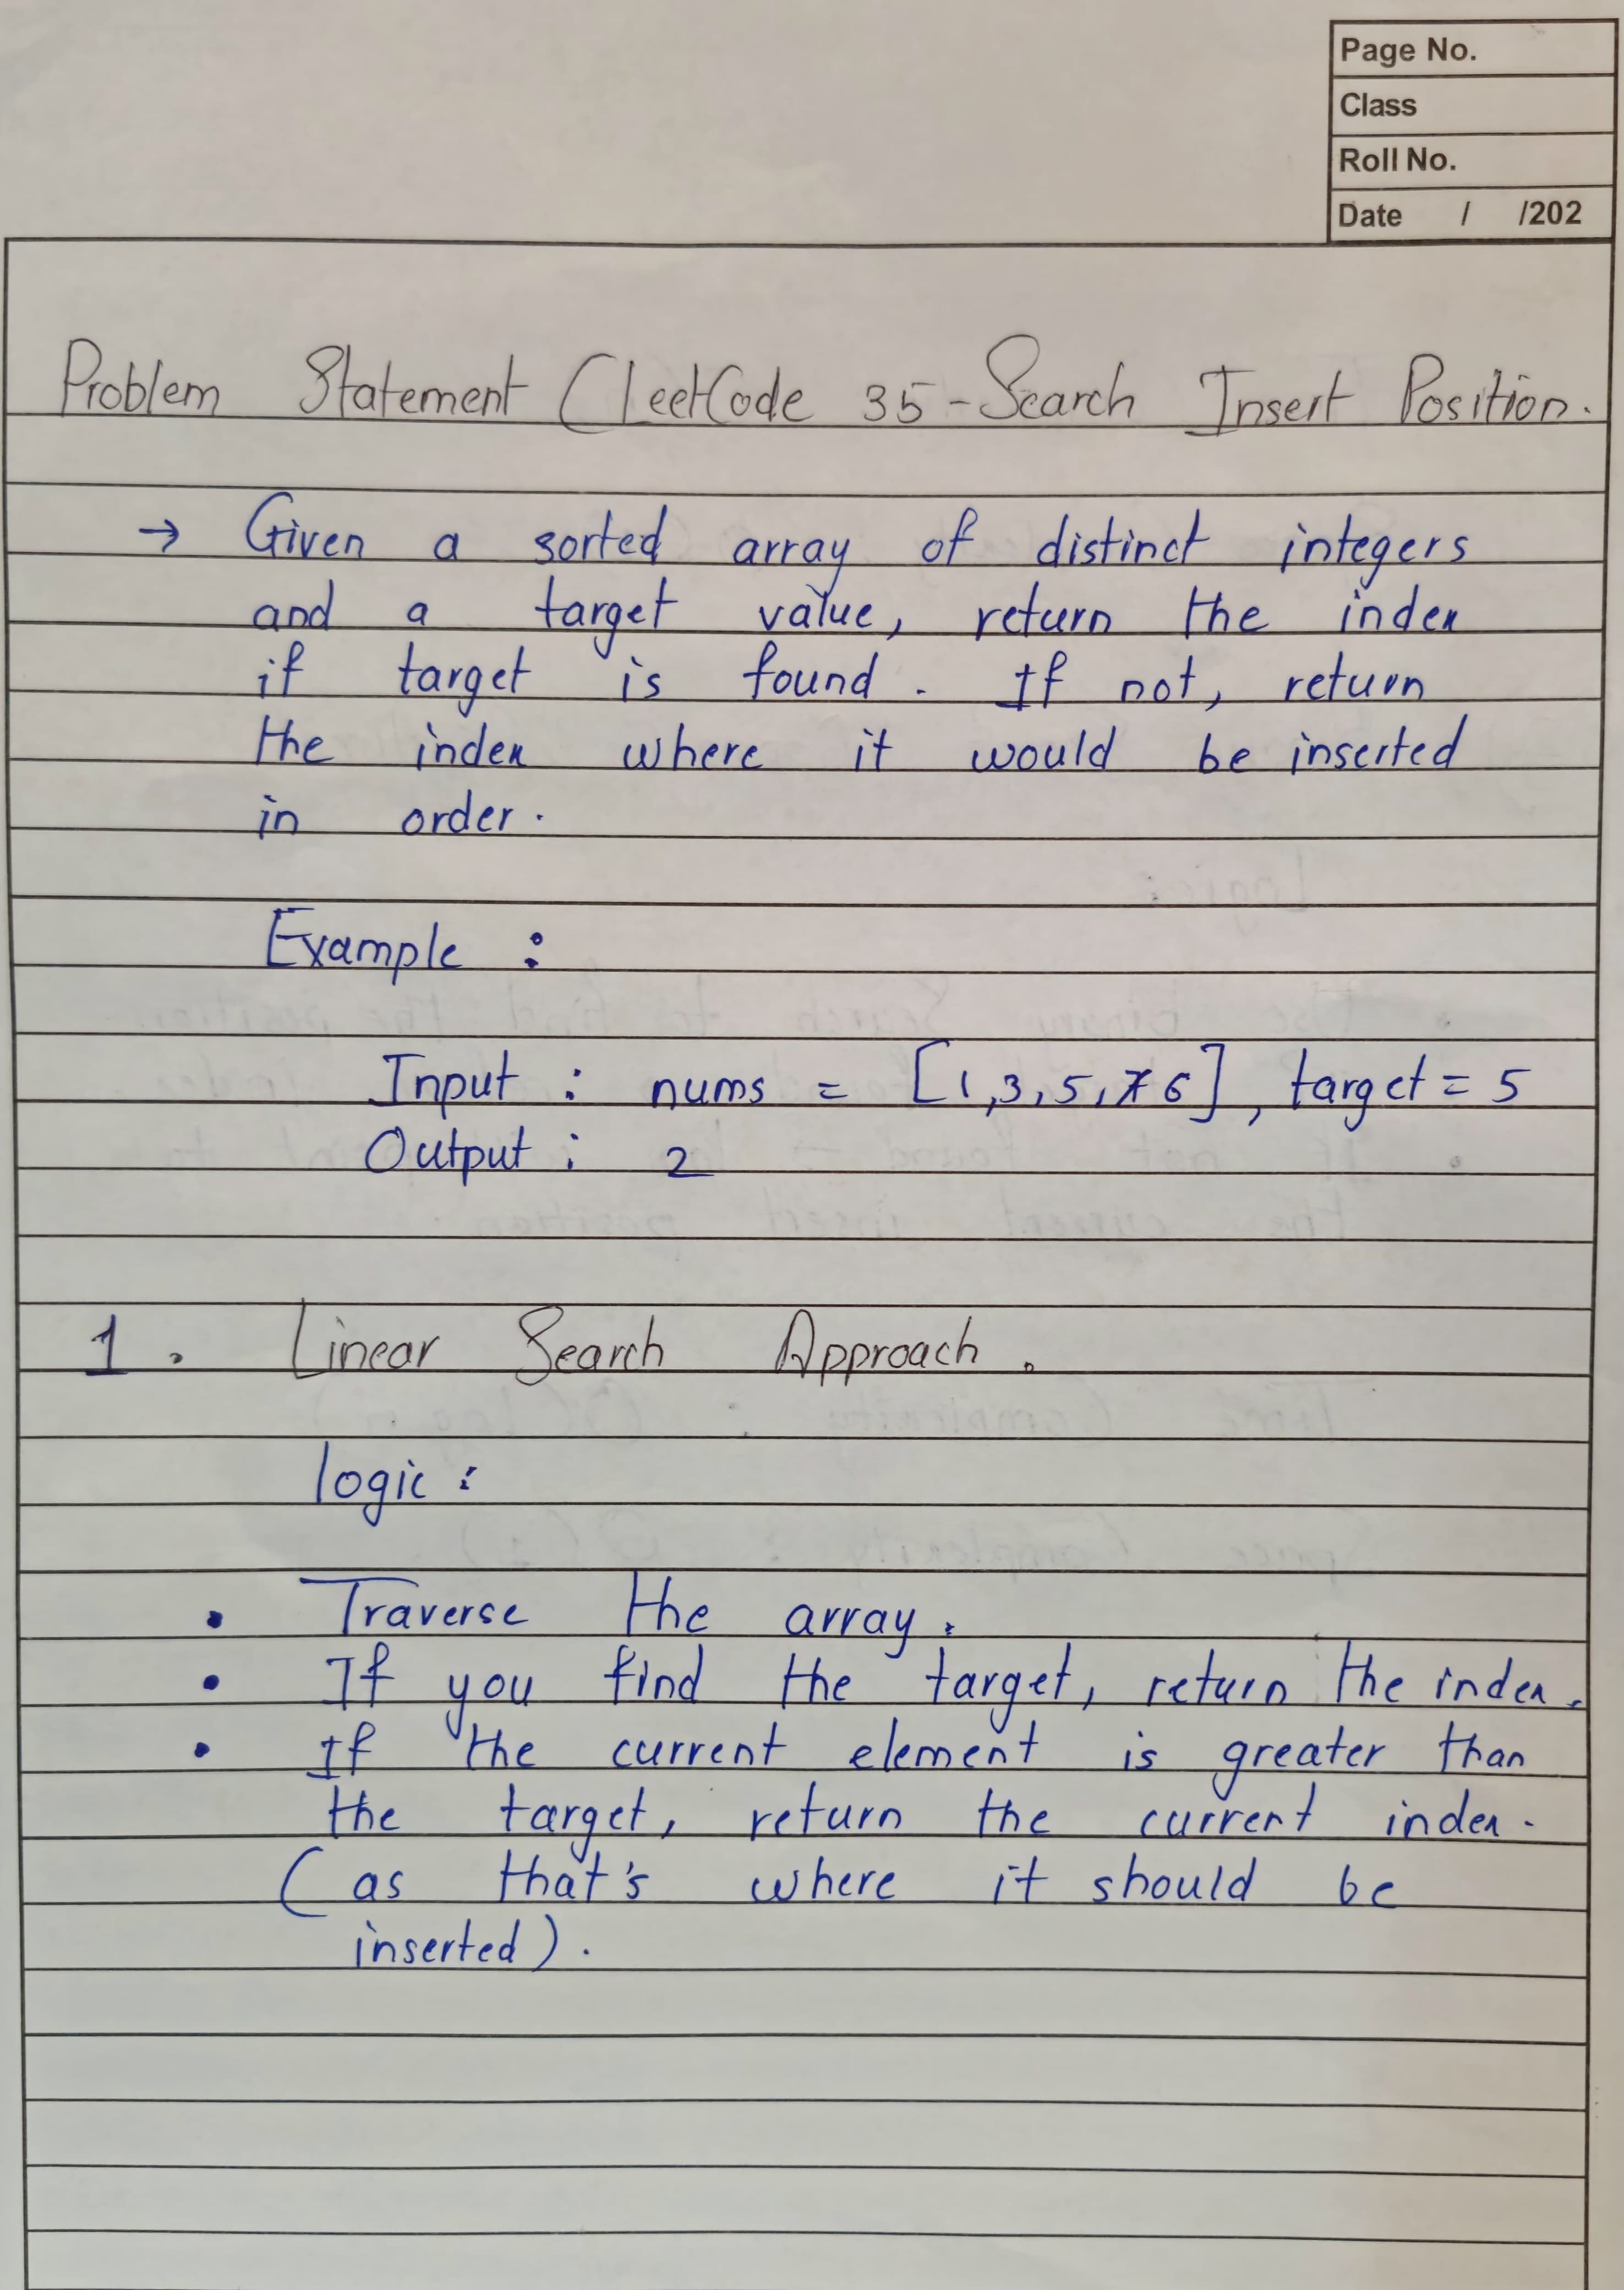 Page No.
Class
Roll No.
Date / /202
Problem Statement (LeetCode 35 - Search Insert Position.
→ Given a sorted array of distinct integers
and a target value, return the index
if target is found. If not, return
the index where it would be inserted
in order.
Example :
Input : nums = [1,3,5,6], target = 5
Output : 2
1. Linear Search Approach.
logic :
• Traverse the array.
• If you find the target, return the index.
• If the current element is greater than
the target, return the current index.
(as that's where it should be
inserted).